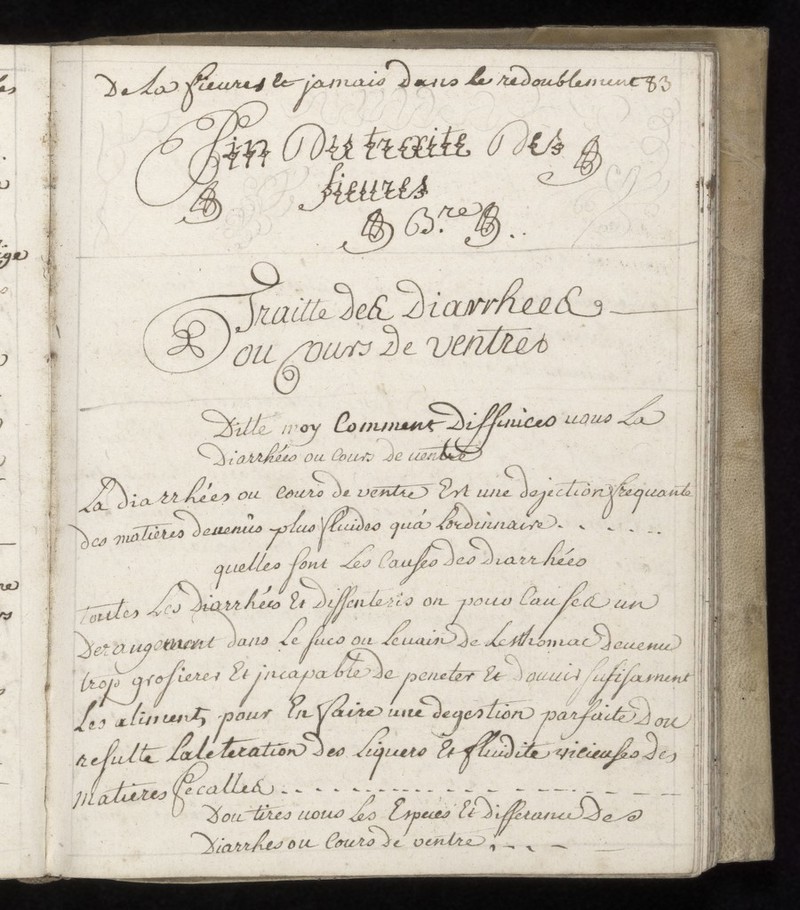 De la fieures et jamais Dans le redoublement 83
Fin Du traite Des
fieures
B.re
Traitte des Diarrhees
ou Cours De ventres
Ditte moy Comment Diffinices uous La
Diarrhées ou Cours de uentre
La diarrhées ou cours de ventre Est une dejection frequante
des matieres deuenüs plus fluides quá Lordinnaire . . . . . .
quelles sont Les Causes des diarrhées
toutes Les Diarrhées Et dissenteris on pour Causes un
Derangement dans Le sucs ou Leuain de Lesthomac Deuenu
trop grosieres Et jncapable De peneter Et Douuir sufisament
Les aliments pour En faire une degestion parfaite Dou
resulte Laleteration Des Liquers Et fluidite vicieuses Des
Matieres fecalles . . . . . . . . . . . . . . . . . . .
Dou tires uous Les Especes Et differance Des
Diarrhes ou Cours de ventre . . . .